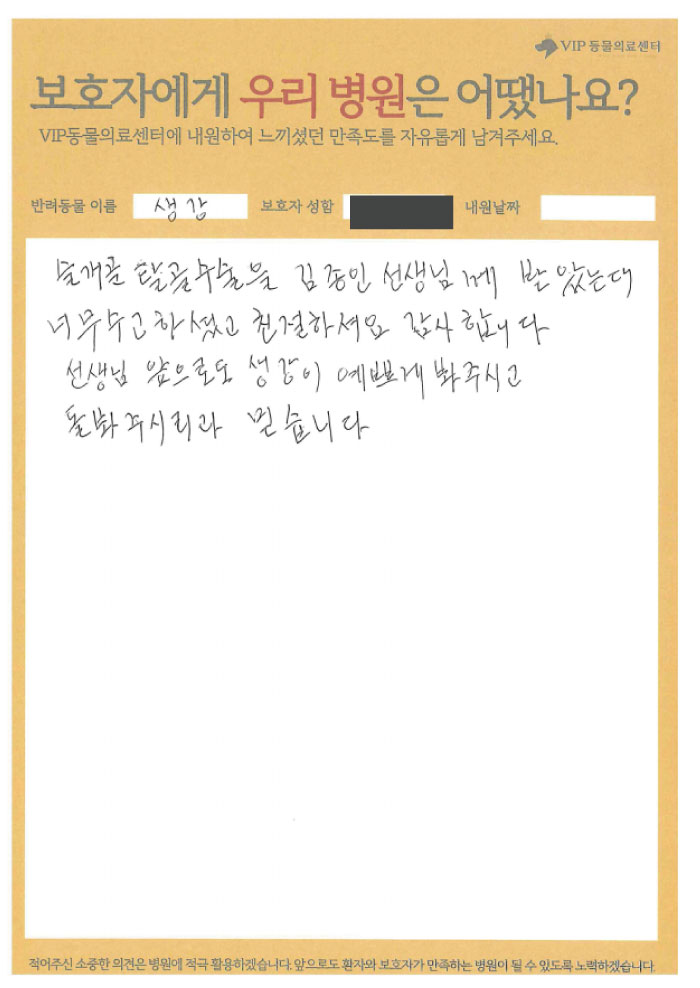 VIP 동물의료센터
보호자에게 우리 병원은 어땠나요?
VIP동물의료센터에 내원하여 느끼셨던 만족도를 자유롭게 남겨주세요.
반려동물 이름 생강 보호자 성함 내원날짜
슬개골 탈골수술을 김종인 선생님께 받았는데
너무 수고하셨고 친절하셔요 감사합니다
선생님 앞으로도 생강이 예쁘게 봐주시고
돌봐주시리라 믿습니다
적어주신 소중한 의견은 병원에 적극 활용하겠습니다. 앞으로도 환자와 보호자가 만족하는 병원이 될 수 있도록 노력하겠습니다.